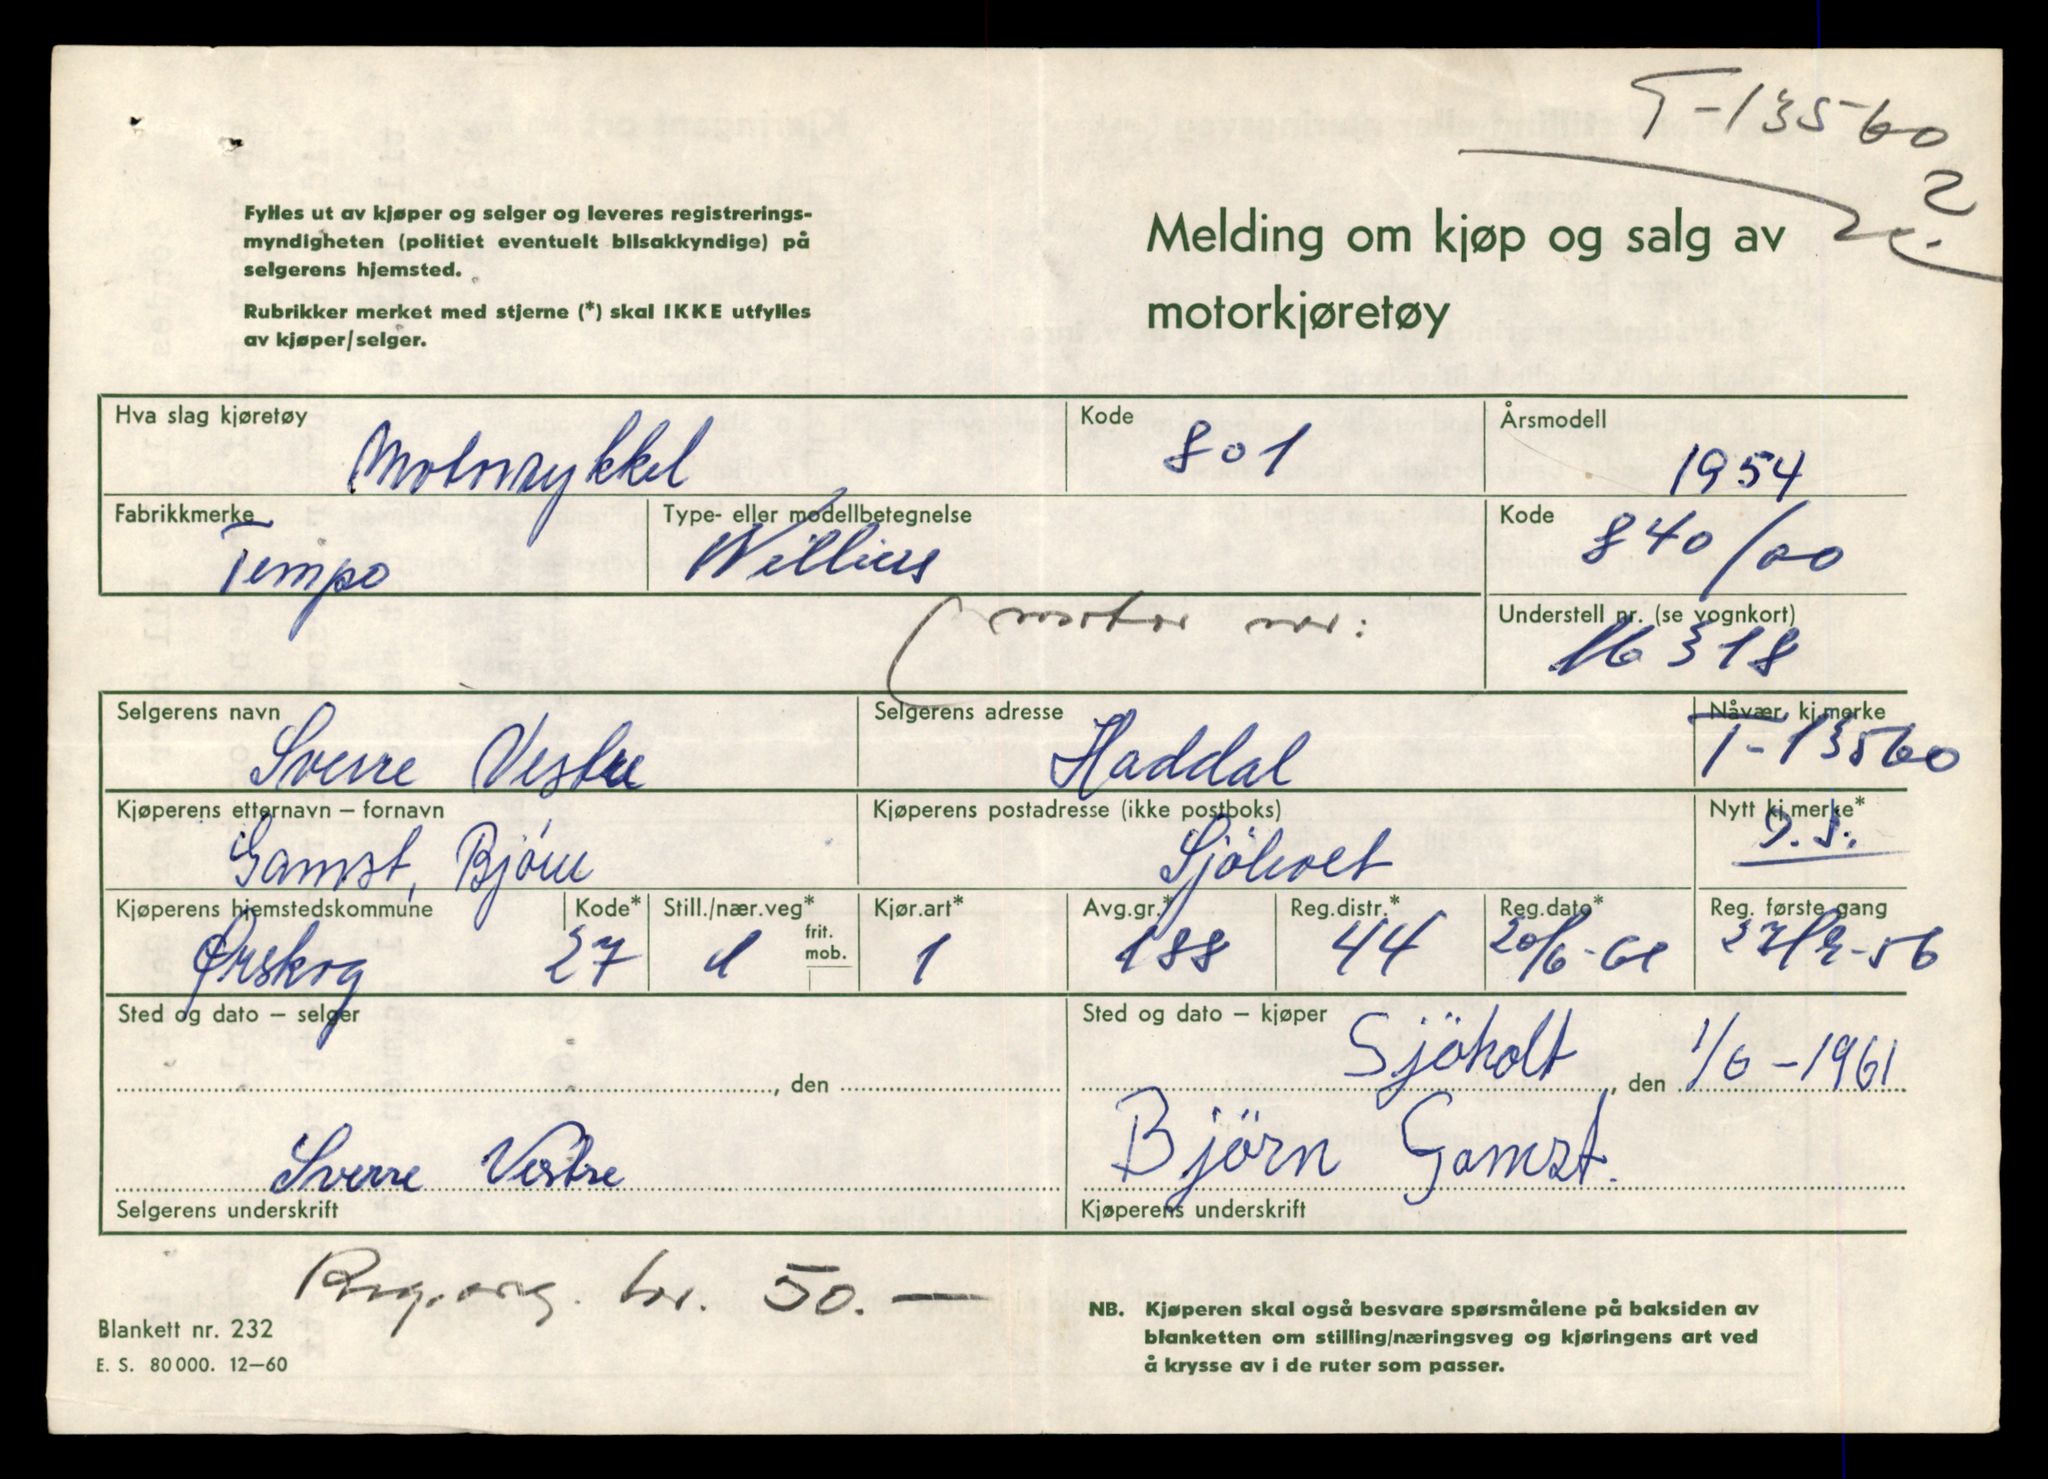 T-13560
2
Fylles ut av kjøper og selger og leveres registrerings-
myndigheten (politiet eventuelt bilsakkyndige) på
selgerens hjemsted.
Rubrikker merket med stjerne (*) skal IKKE utfylles
av kjøper/selger.
Melding om kjøp og salg av
motorkjøretøy
Hva slag kjøretøy Motorsykkel Kode 801 Årsmodell 1954
Fabrikkmerke Tempo Type- eller modellbetegnelse Williers Kode 840/00
(motor nr: Understell nr. (se vognkort) 16318
Selgerens navn Sverre Vestre Selgerens adresse Haddal Nåvær. kj.merke T-13560
Kjøperens etternavn – fornavn Gamst, Bjørn Kjøperens postadresse (ikke postboks) Sjøholt Nytt kj.merke* D.S.
Kjøperens hjemstedskommune Ørskog Kode* 27 Still./nær.veg* 1 frit. mob. Kjør.art* 1 Avg.gr.* 188 Reg.distr.* 44 Reg.dato* 20/6-61 Reg. første gang 27/9-56
Sted og dato – selger , den Sted og dato – kjøper Sjöholt , den 1/6-1961
Sverre Vestre Björn Gamst.
Selgerens underskrift Kjøperens underskrift
Reg.avg. kr. 50.—
Blankett nr. 232
E. S. 80 000. 12–60
NB. Kjøperen skal også besvare spørsmålene på baksiden av
blanketten om stilling/næringsveg og kjøringens art ved
å krysse av i de ruter som passer.